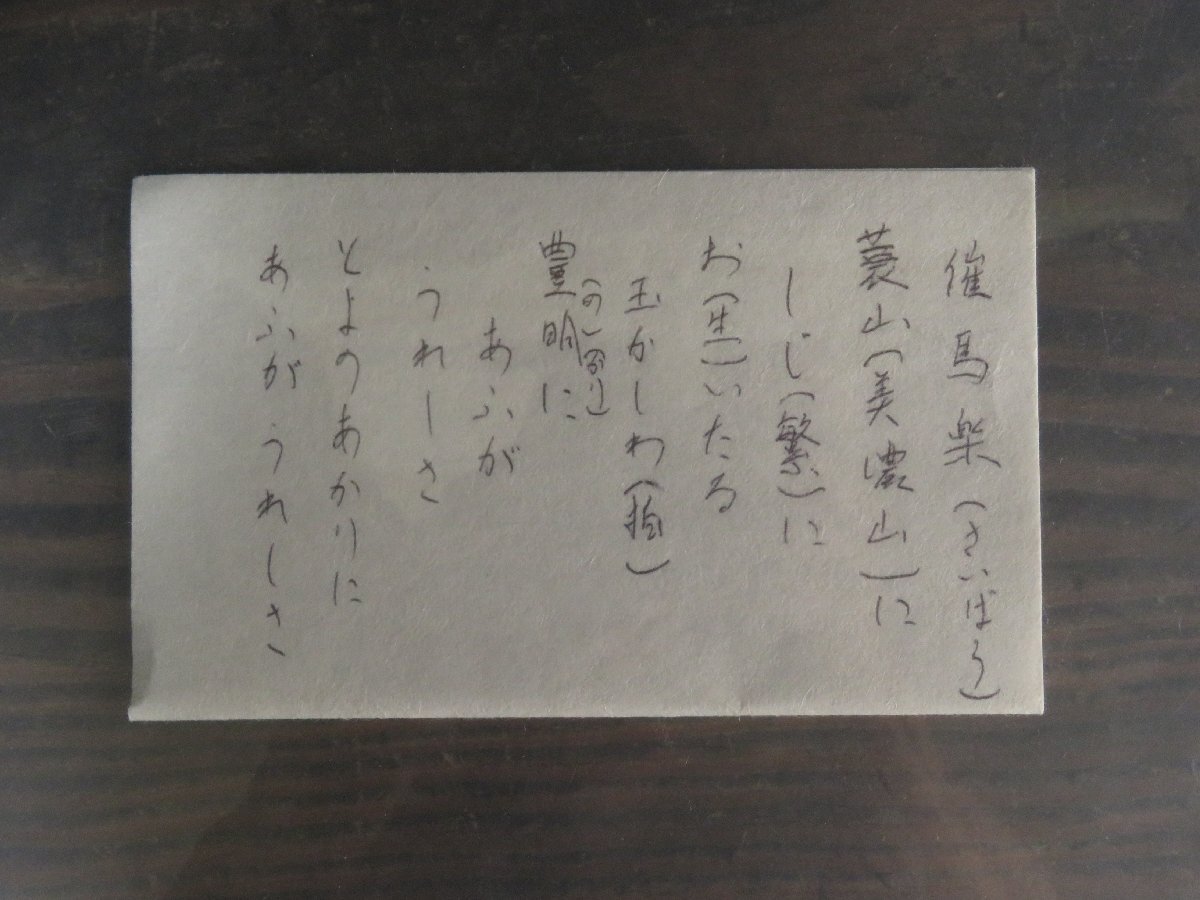 催馬楽(さいばらう)
蓑山(美濃山)に
しじ(繁)に
お(生)いたる
玉かしわ(柏)
豊明(のあかり)に
あふが
うれしさ
とよのあかりに
あふがうれしさ